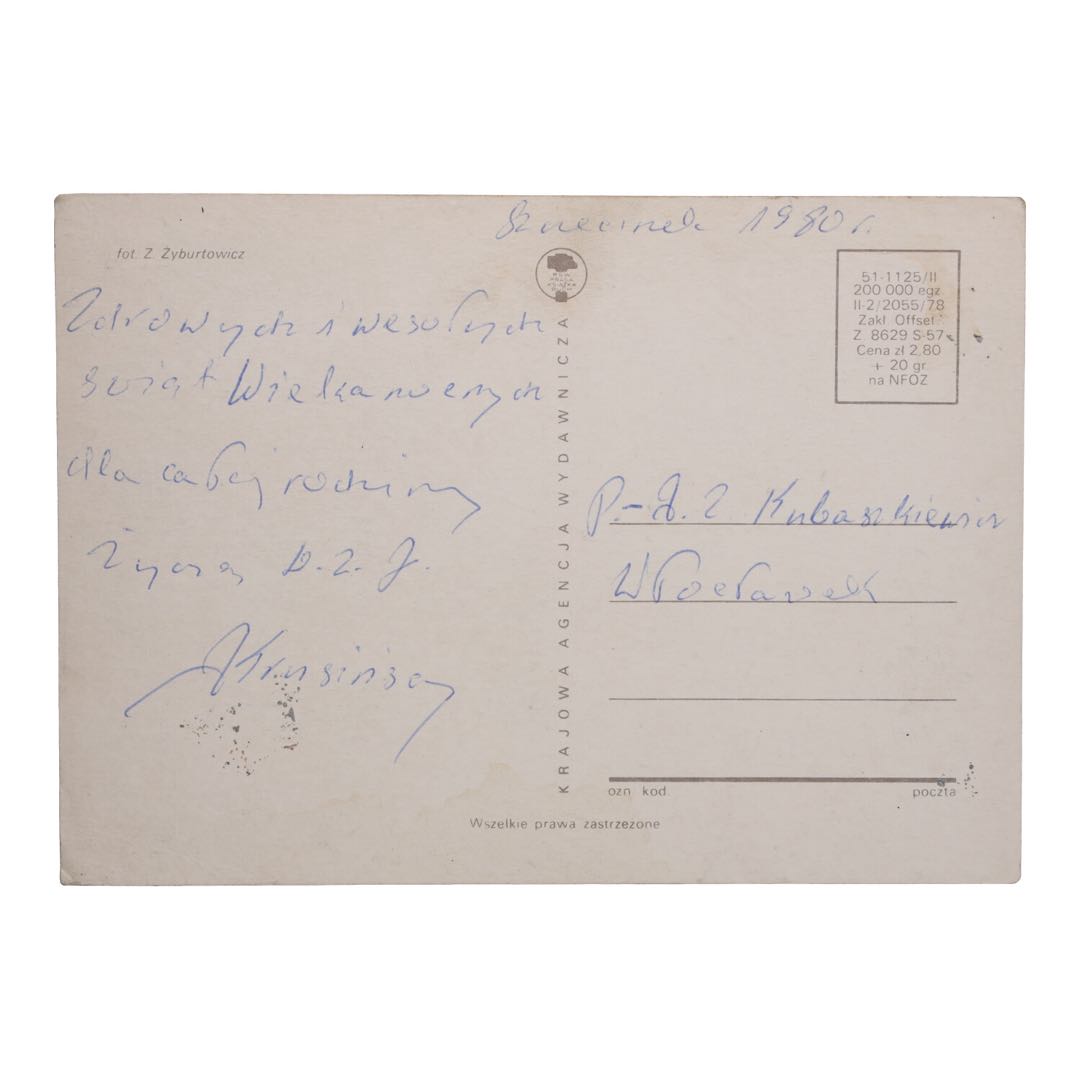 Szczecinek 1980 r.
fot. Z. Żyburtowicz
Zdrowych i wesołych
świąt Wielkanocnych
dla całej rodziny
życzą D. Z. J.
Krusińscy
KRAJOWA AGENCJA WYDAWNICZA
RSW
PRASA
KSIĄŻKA
RUCH
51-1125/II
200 000 egz.
II-2/2055/78
Zakł. Offset.
Z. 8629 S-57
Cena zł 2,80
+ 20 gr
na NFOZ
Z. Kubaszkiewicz
Włocławek
ozn. kod. poczta
Wszelkie prawa zastrzeżone